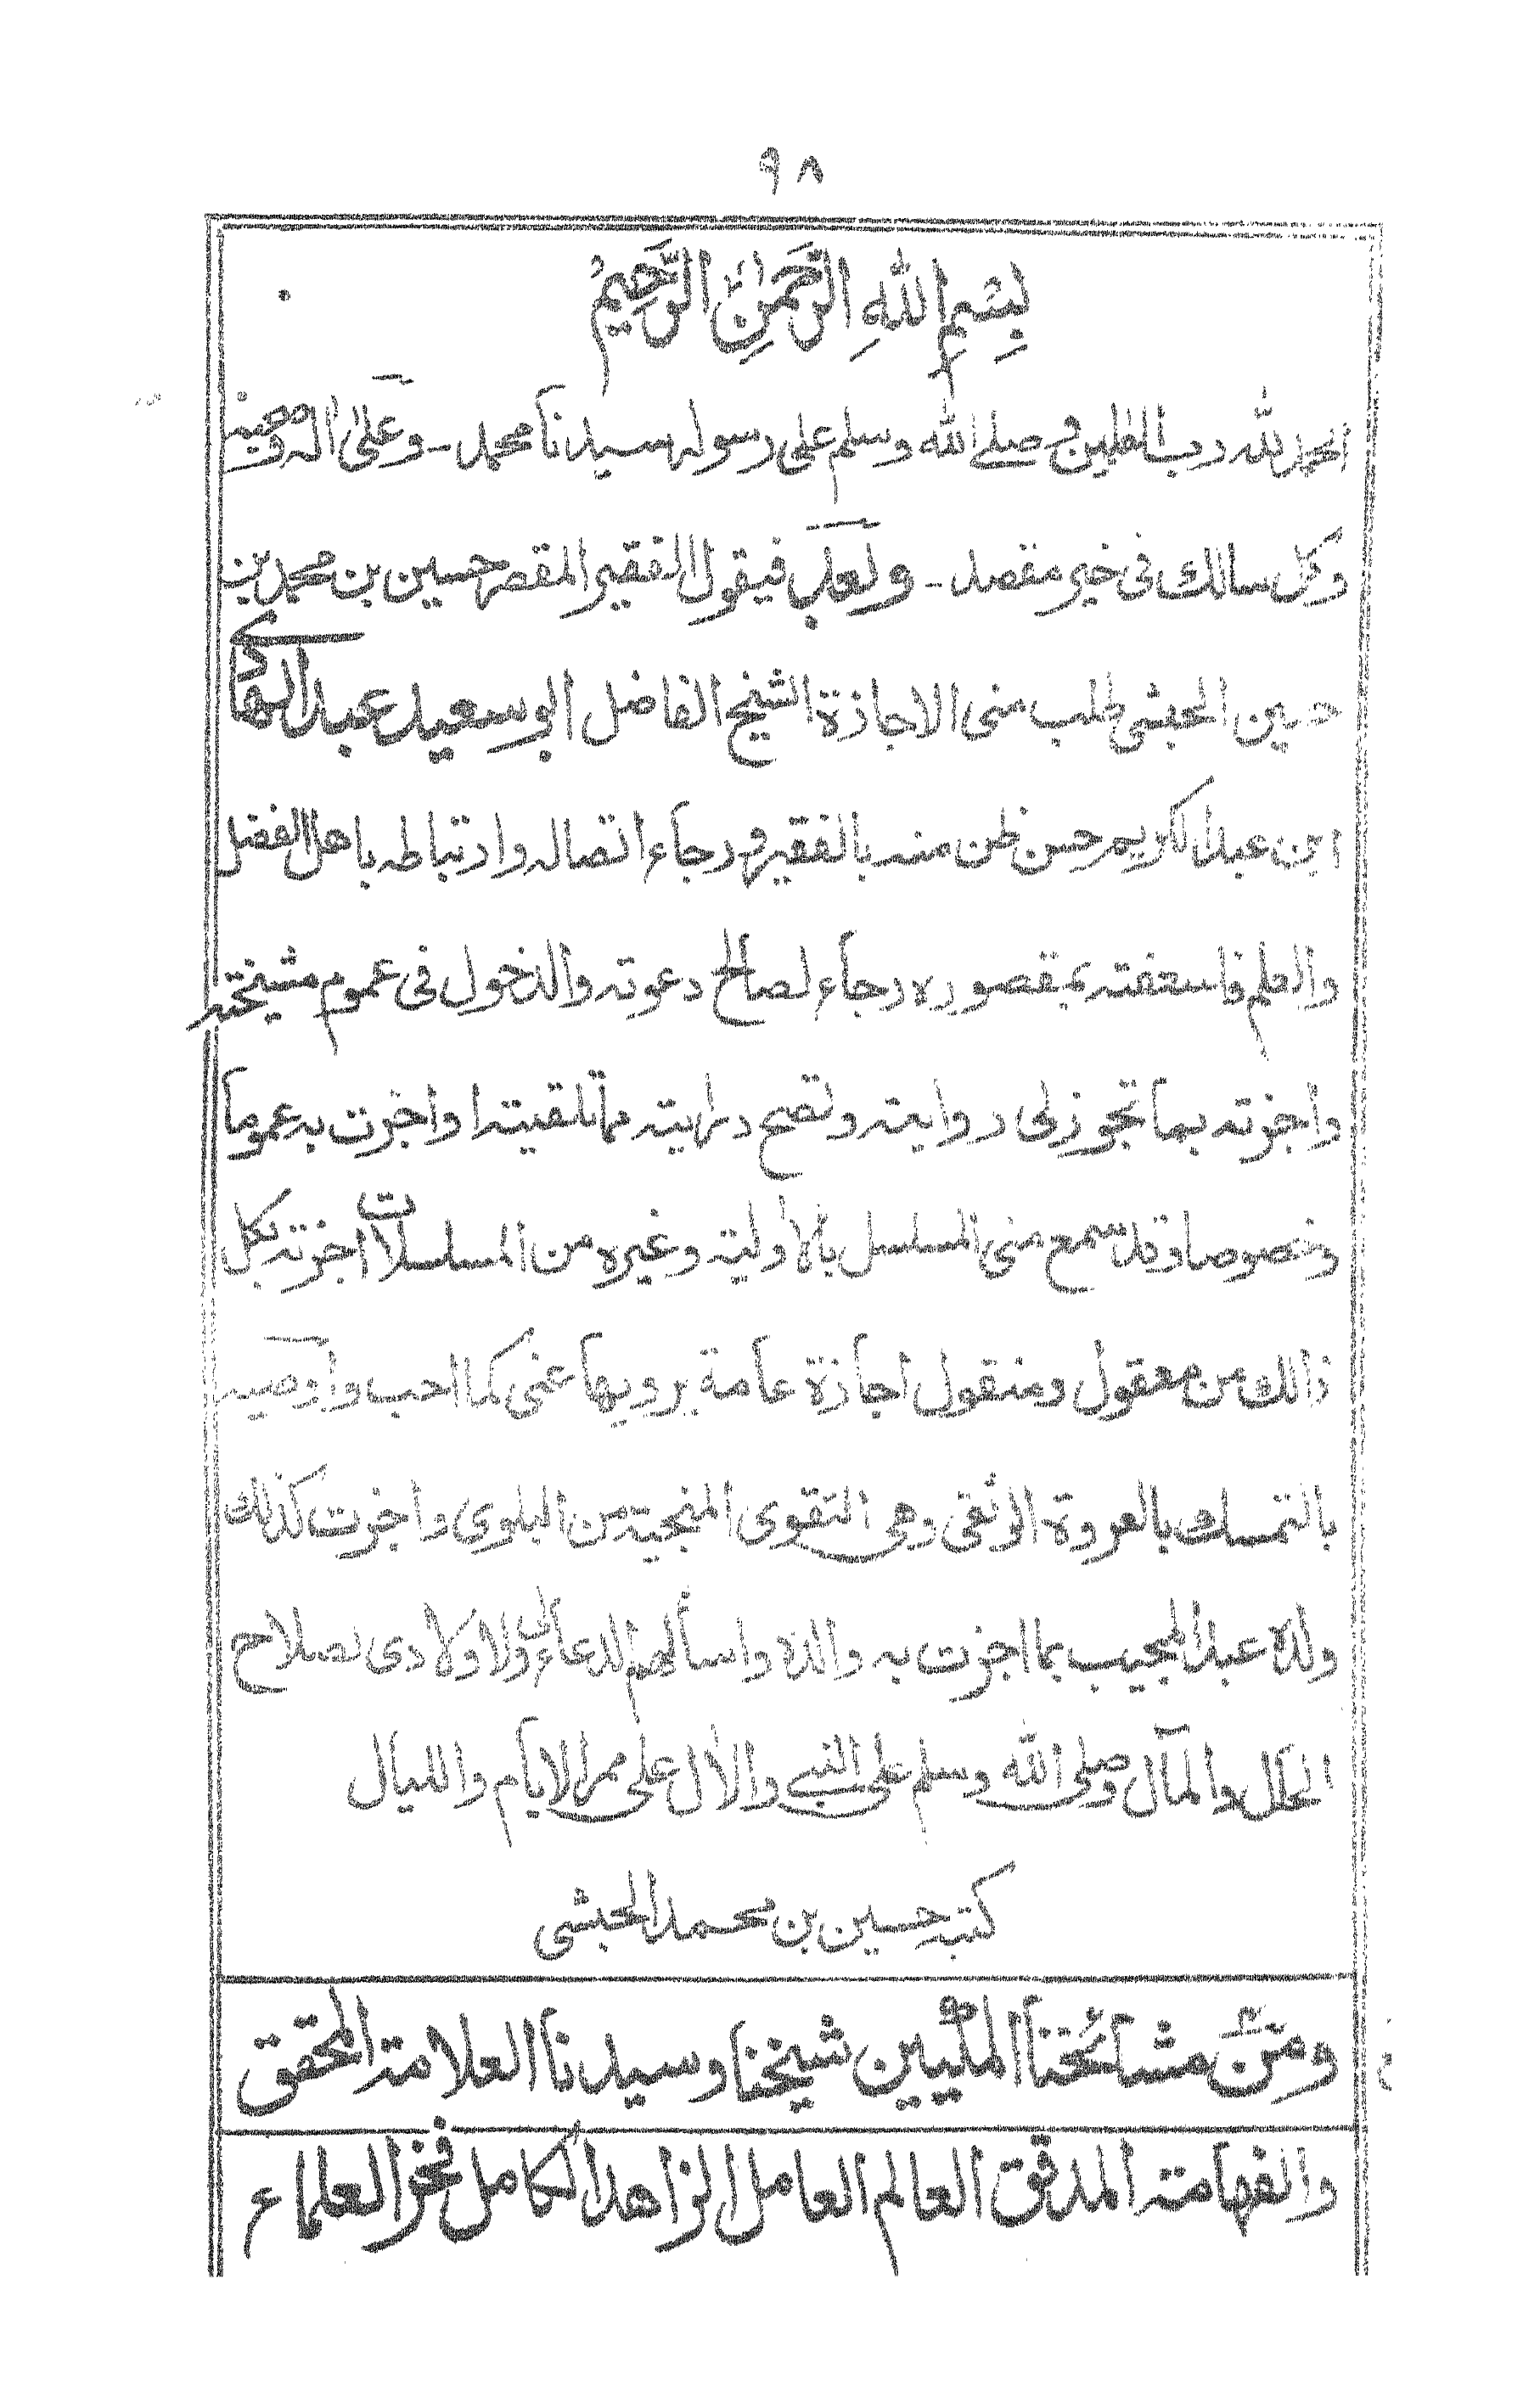 ٩٨
بِسْمِ اللهِ الرَّحْمٰنِ الرَّحِيْمِ
الحمد لله رب العلمين وصلے الله وسلم على رسوله سيدنا محمد ـ وعلى اله وصحبه
وكل سالك فى خير مقصد ـ وبعد فيقول الفقير المقصر حسين بن محمد بن
حسين الحبشى طلب منى الاجازة الشيخ الفاضل ابو سعيد عبد الهادى
ابن عبد الكريم حسن ظن منه بالفقير ورجاء اتصاله وارتباطه باهل الفضل
والعلم فاسعفته بمقصوره رجاء لصالح دعوته والدخول فى عموم مشيخته
واجزته بما تجوز لى روايته وتصح درايته مما تلقيته او اجزت به عموما
وخصوصا وقد سمع منى المسلسل بالاولية وغيره من المسلسلات اجزته بكل
ذالك من معقول ومنقول اجازة عامة يرويها عنى كما احب واوصيه
بالتمسك بالعروة الوثقى وهى التقوى المنجية من البلوى واجزت كذلك
ولده عبد المجيب بما اجزت به والده واسألهم الدعاء لى ولاولادى بصلاح
الحال والمآل وصلى الله وسلم على النبے والال على ممر الايام والليال
كتبه حسين بن محمد الحبشى
ومن مشائخنا المكيين شيخنا وسيدنا العلامة المحقق
والفهامة المدقق العالم العامل الزاهد الكامل فخر العلماء